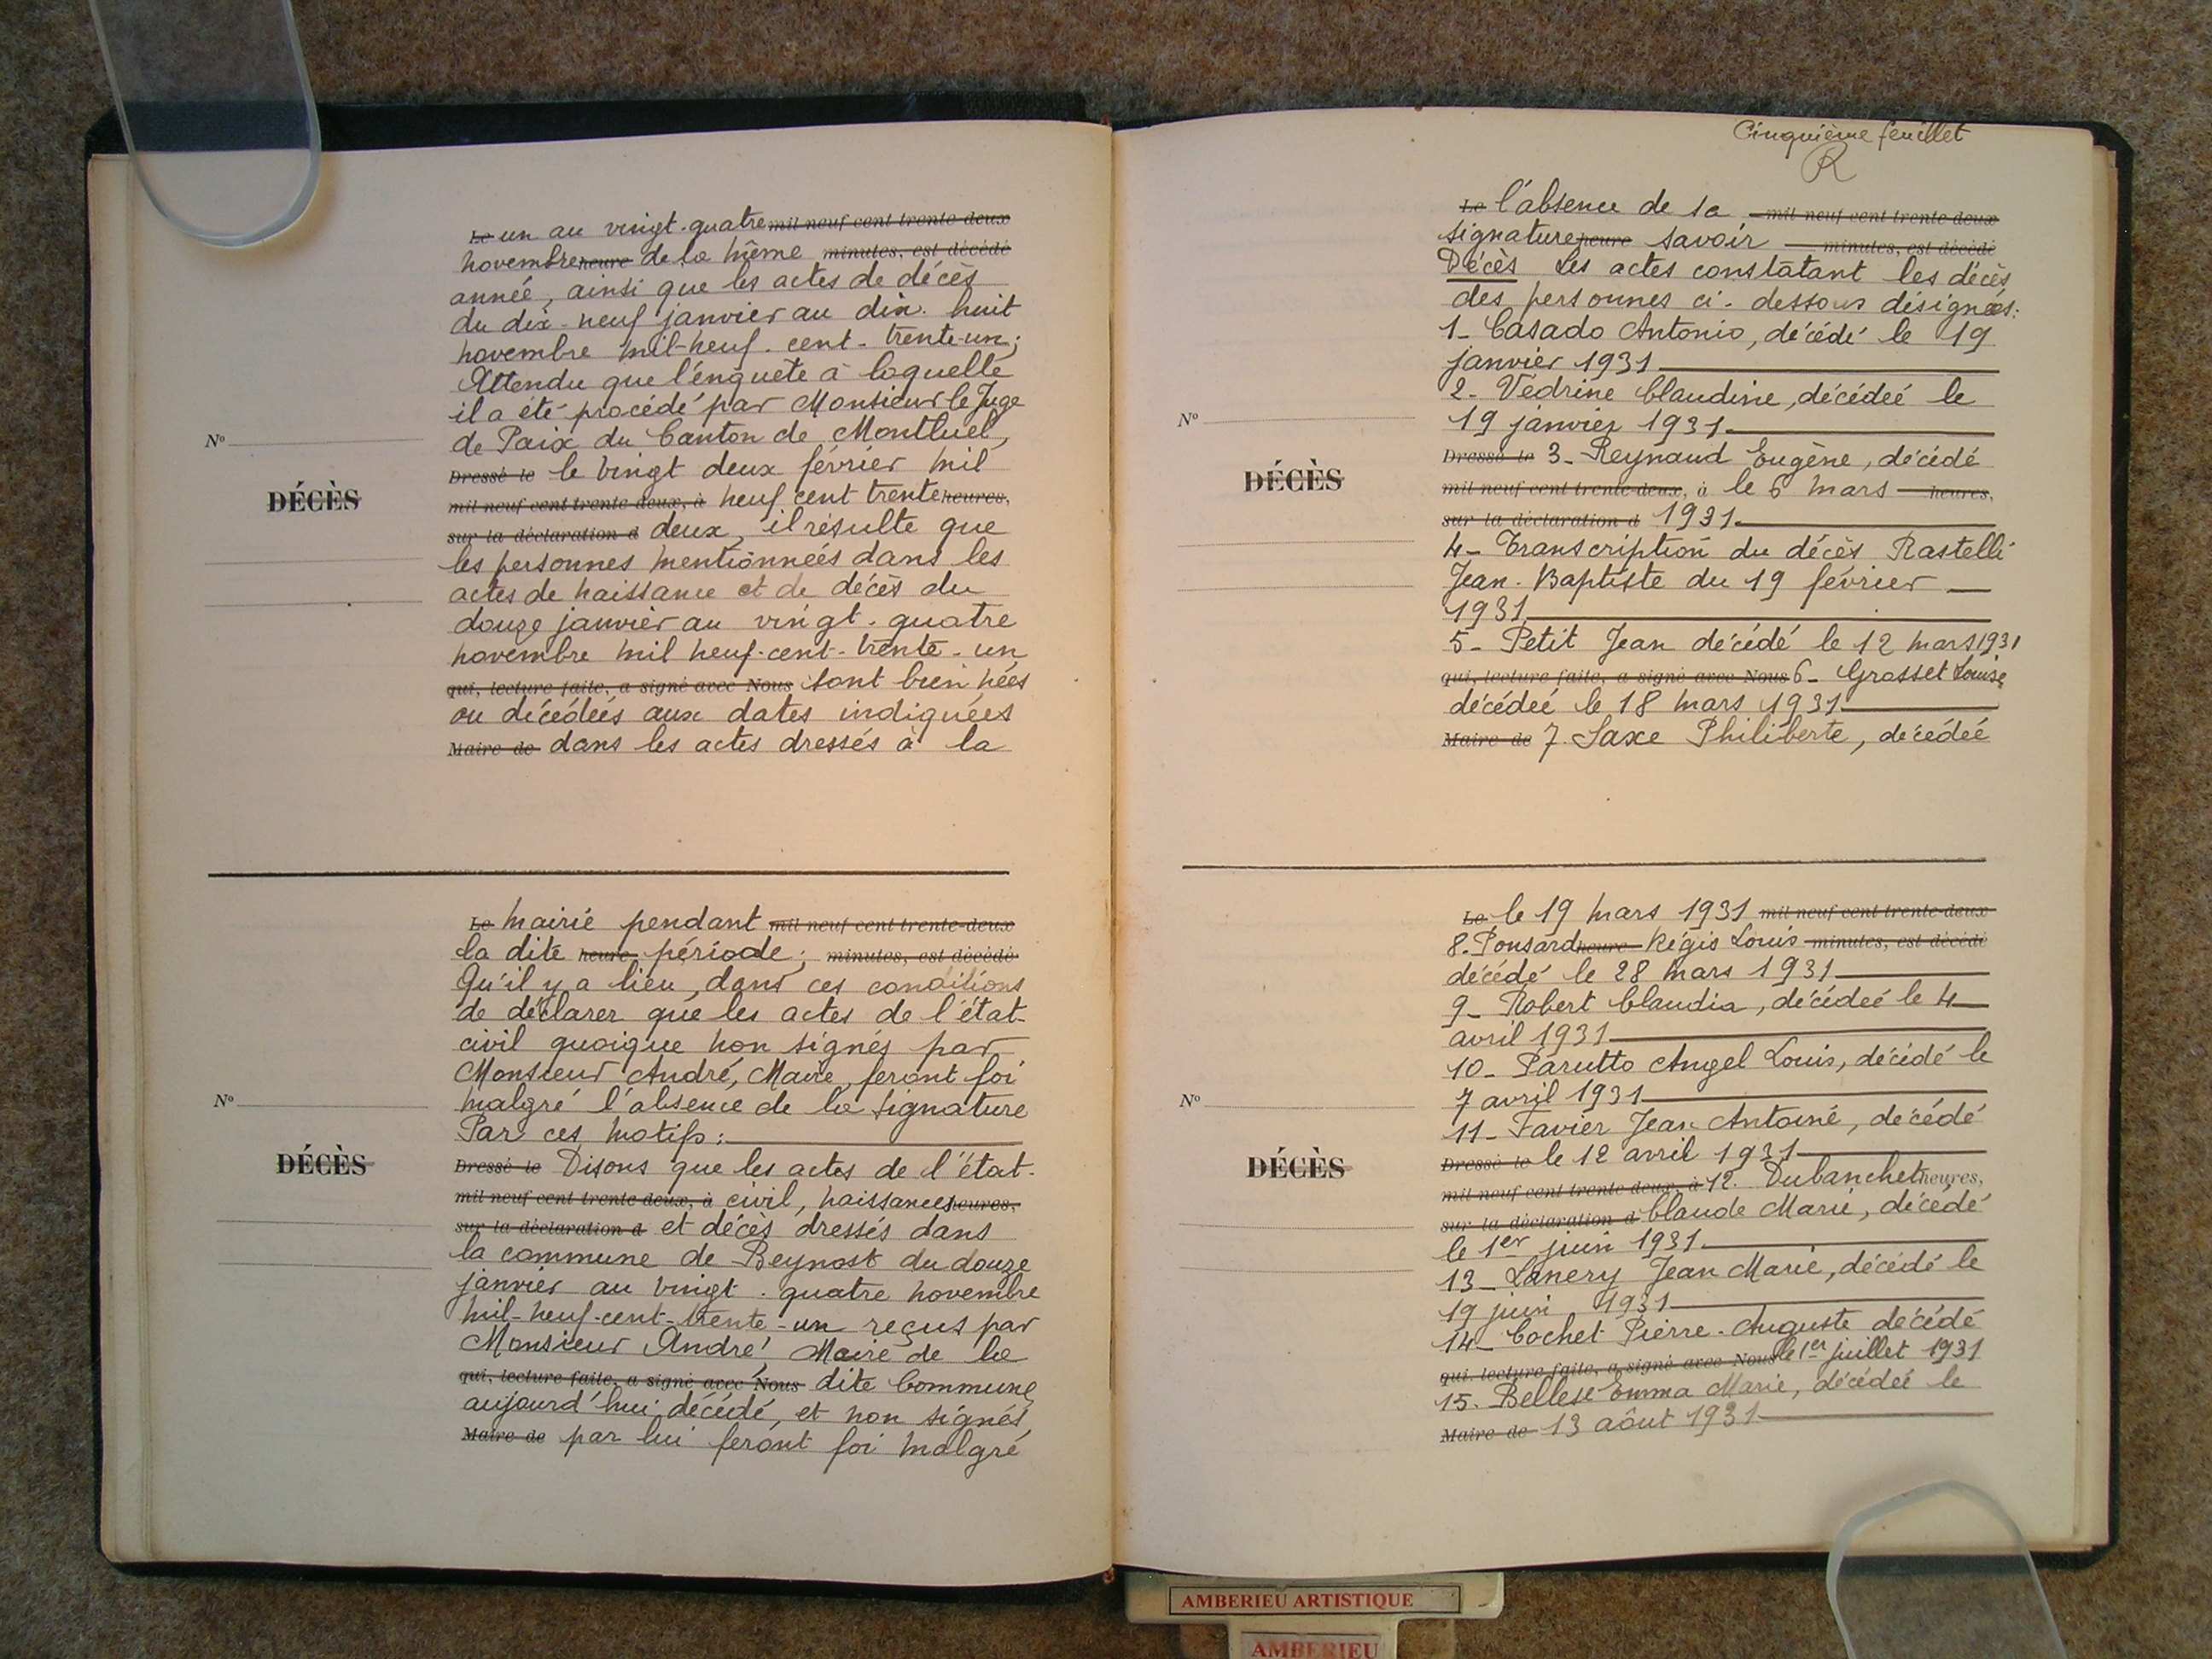 Le un au vingt-quatre mil neuf cent trente-deux
novembre heure de la même minutes, est décédé
année, ainsi que les actes de décès
du dix-neuf janvier au dix-huit
novembre mil-neuf-cent-trente-un;
Attendu que l'enquête à laquelle
il a été procédé par Monsieur le Juge
de Paix du Canton de Montluel,
Nº
Dressé le le vingt deux février mil
mil neuf cent trente-deux, à neuf cent trente heures,
DÉCÈS
sur la déclaration d deux, il résulte que
les personnes mentionnées dans les
actes de naissance et de décès du
douze janvier au vingt-quatre
novembre mil neuf-cent-trente-un
qui, lecture faite, a signé avec Nous sont bien nées
ou décédées aux dates indiquées
Maire de dans les actes dressés à la
Le mairie pendant mil neuf cent trente-deux
la dite heure période; minutes, est décédé
Qu'il y a lieu, dans ces conditions
de déclarer que les actes de l'état-
civil quoique non signés par
Monsieur André, Maire, feront foi
malgré l'absence de la signature
Nº
Par ces motifs:
Dressé le Disons que les actes de l'état-
DÉCÈS
mil neuf cent trente-deux, à civil, naissances heures,
sur la déclaration d et décès dressés dans
la commune de Beynost du douze
janvier au vingt-quatre novembre
mil-neuf-cent-trente-un reçus par
Monsieur André, Maire de la
qui, lecture faite, a signé avec Nous dite Commune
aujourd'hui décédé, et non signés
Maire de par lui feront foi malgré
Cinquième feuillet
R
Le l'absence de sa mil neuf cent trente-deux
signature heure savoir minutes, est décédé
Décès Les actes constatant les décès
des personnes ci-dessous désignées:
1- Casado Antonio, décédé le 19
janvier 1931
2- Védrine Claudine, décédée le
Nº
19 janvier 1931.
Dressé le 3- Reynaud Eugène, décédé
DÉCÈS
mil neuf cent trente-deux, à le 6 mars heures,
sur la déclaration d 1931.
4- Transcription du décès Rastelli
Jean-Baptiste du 19 février
1931
5- Petit Jean décédé le 12 mars 1931
qui, lecture faite, a signé avec Nous 6- Grosset Louise
décédée le 18 mars 1931
Maire de 7. Saxe Philiberte, décédée
Le le 19 mars 1931 mil neuf cent trente-deux
8. Ponsard heure Régis Louis minutes, est décédé
décédé le 28 mars 1931
9- Robert Claudia, décédée le 4
avril 1931
10- Parutto Angel Louis, décédé le
Nº
7 avril 1931
11- Favier Jean Antoine, décédé
Dressé le le 12 avril 1931
DÉCÈS
mil neuf cent trente-deux, à 12. Dubanchet heures,
sur la déclaration d Claude Marie, décédé
le 1er juin 1931.
13- Lanery Jean Marie, décédé le
19 juin 1931
14- Cochet Pierre-Auguste décédé
qui, lecture faite, a signé avec Nous le 1er juillet 1931
15. Bellese Emma Marie, décédée le
Maire de 13 août 1931
AMBERIEU ARTISTIQUE
AMBERIEU